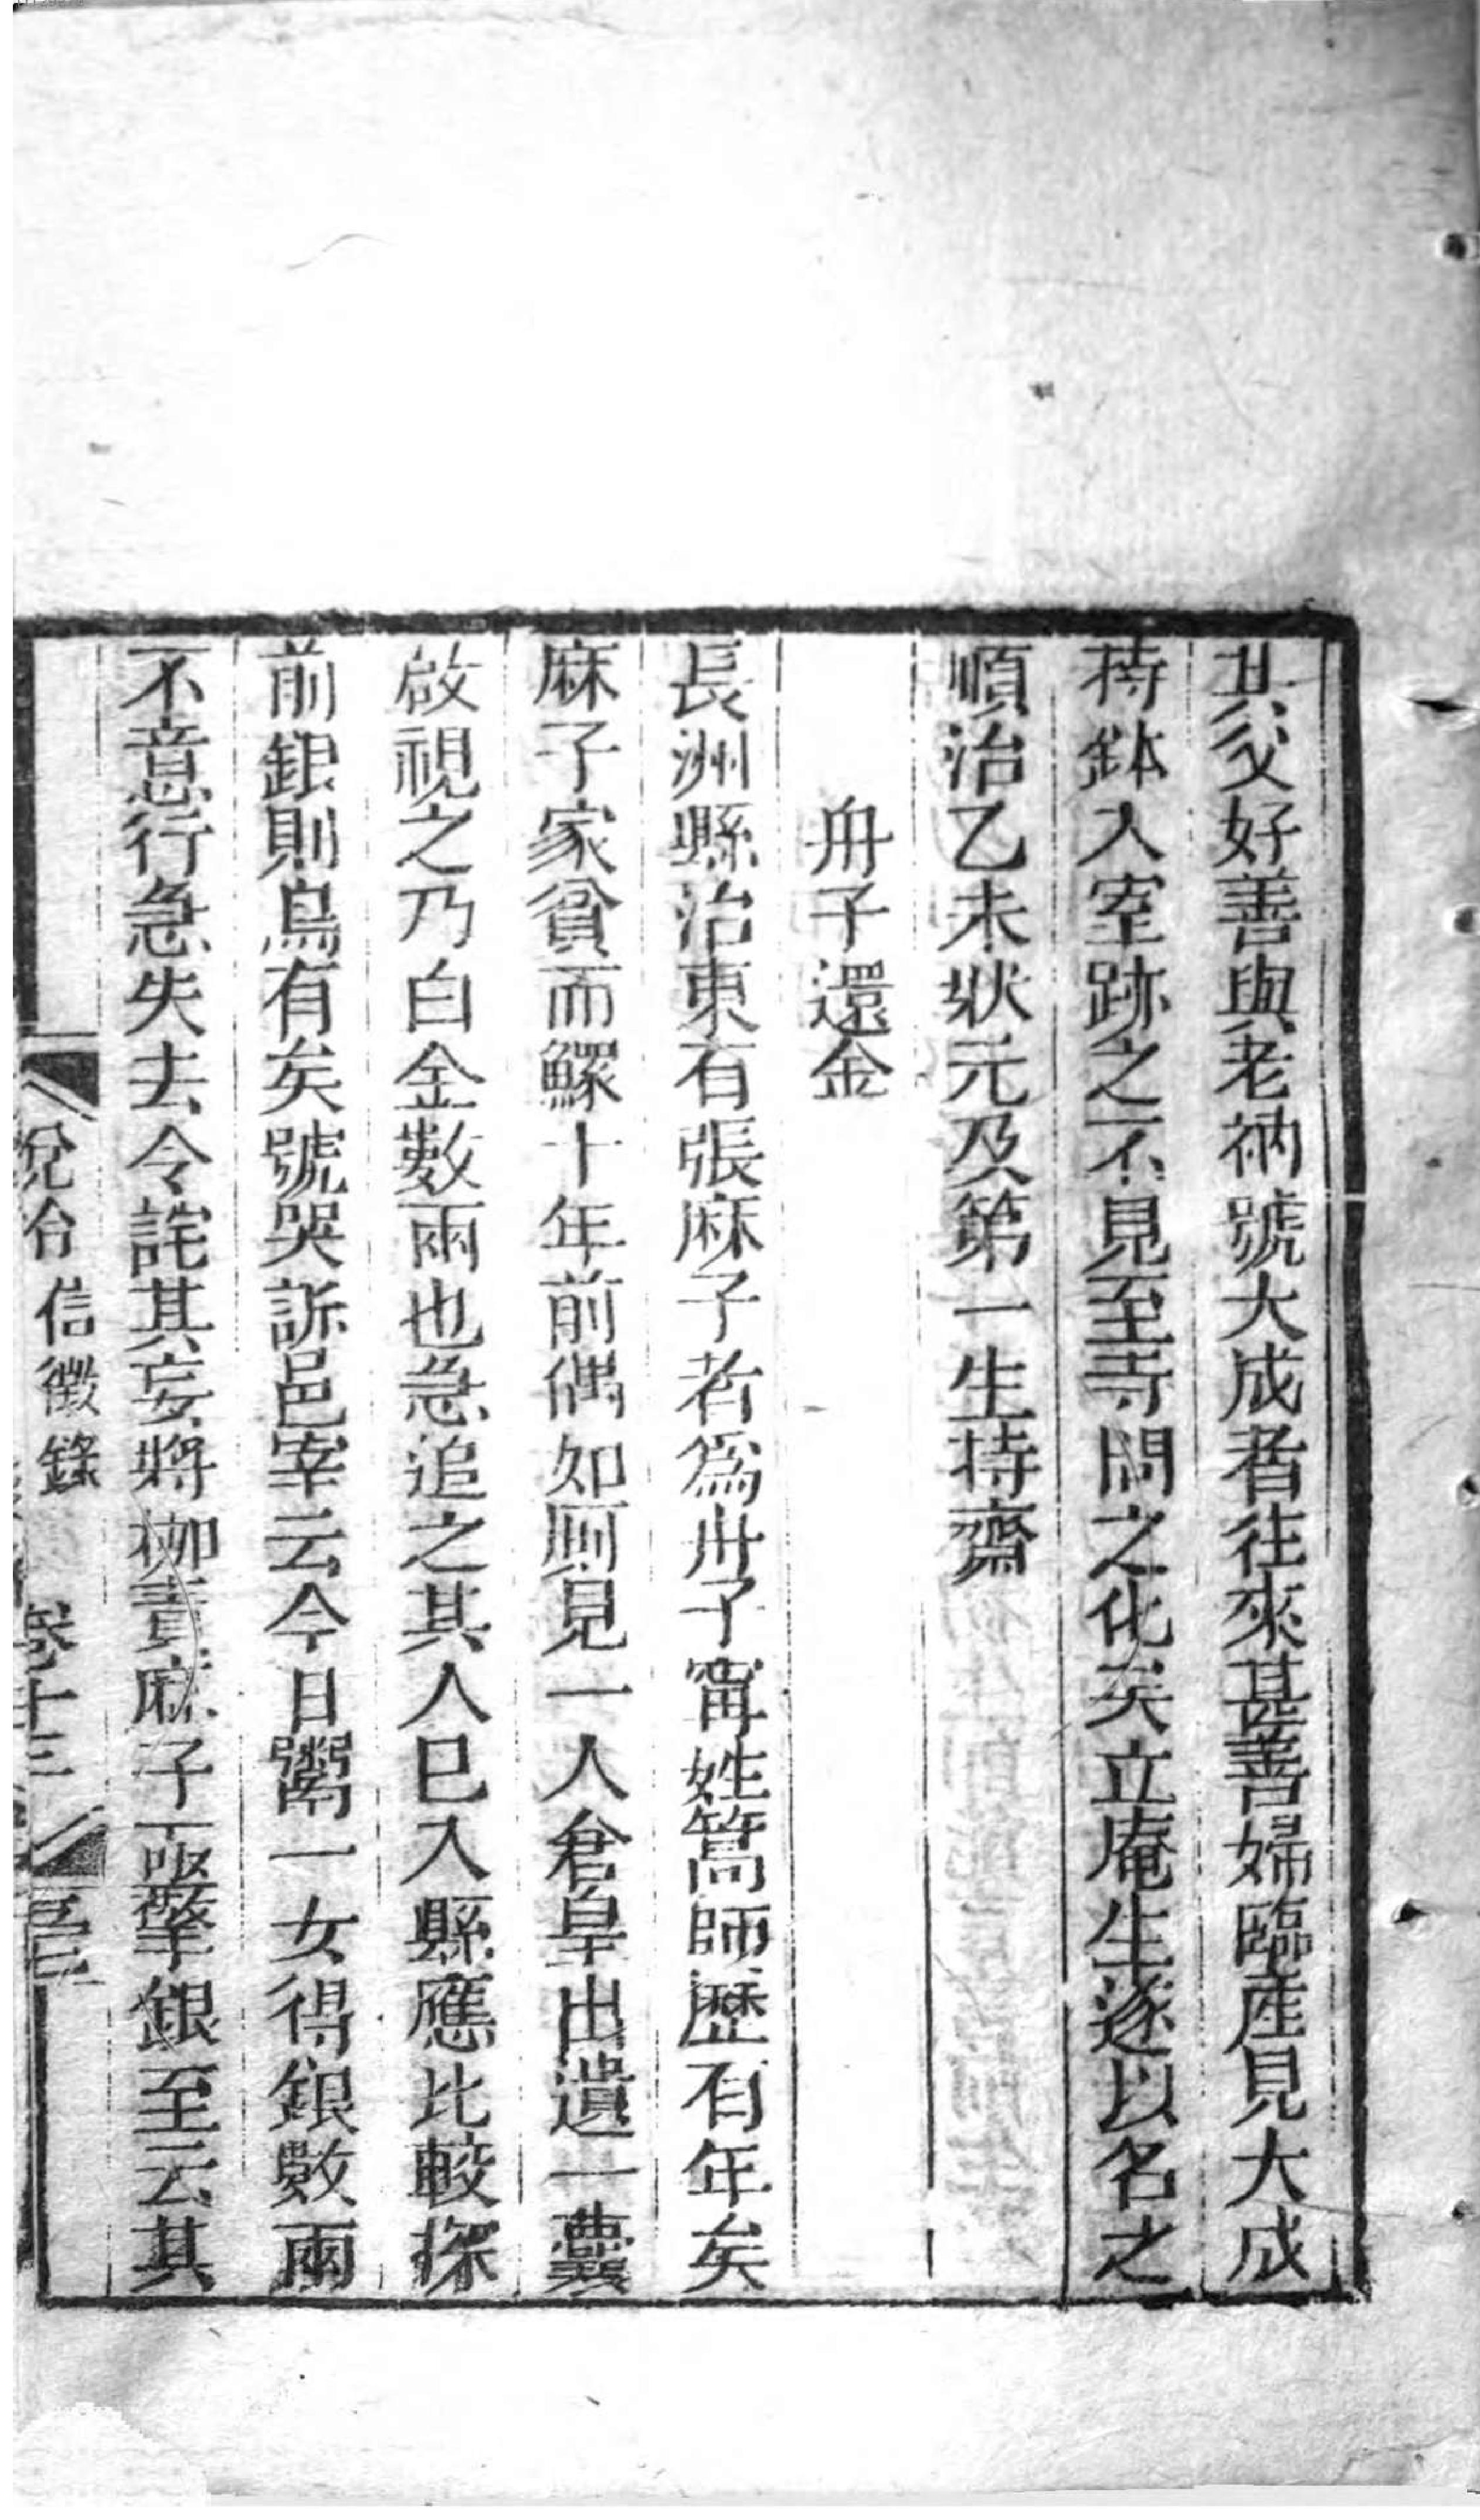 其父好善與老衲號大成者往來甚善婦臨產見大成
持鉢入室跡之不見至寺問之化矣立庵生遂以名之
順治乙未狀元及第一生持齋
舟子還金
長洲縣治東有張麻子者為舟子甯姓篙師歷有年矣
麻子家貧而鰥十年前偶如厠見一人倉皇出遺一囊
啟視之乃白金數兩也急追之其人巳入縣應比較探
前銀則烏有矣號哭訴邑宰云今日鬻一女得銀數兩
不意行急失去令詫其妄將枷責麻子亟擎銀至云其
說鈴 信徵錄 卷十三